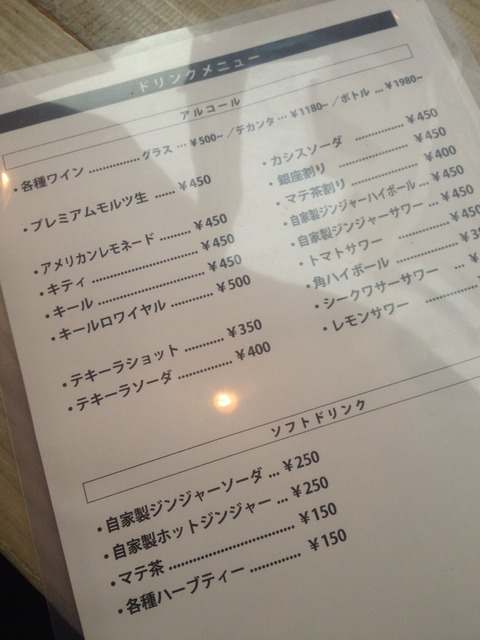 ドリンクメニュー
アルコール
・各種ワイン ............... グラス … ¥500~ ／デカンタ … ¥1180~ ／ボトル … ¥1980~
・プレミアムモルツ生 ...... ¥450
・アメリカンレモネード ......... ¥450
・キティ ........................ ¥450
・キール ........................ ¥450
・キールロワイヤル ............ ¥500
・テキーラショット ........... ¥350
・テキーラソーダ .............. ¥400
・カシスソーダ .............. ¥450
・銀座割り .................... ¥450
・マテ茶割り ................. ¥400
・自家製ジンジャーハイボール ... ¥450
・自家製ジンジャーサワー ... ¥450
・トマトサワー ............... ¥450
・角ハイボール ...............
・シークワサーサワー ... ¥
・レモンサワー ............
ソフトドリンク
・自家製ジンジャーソーダ ... ¥250
・自家製ホットジンジャー ... ¥250
・マテ茶 .............................. ¥150
・各種ハーブティー ............ ¥150